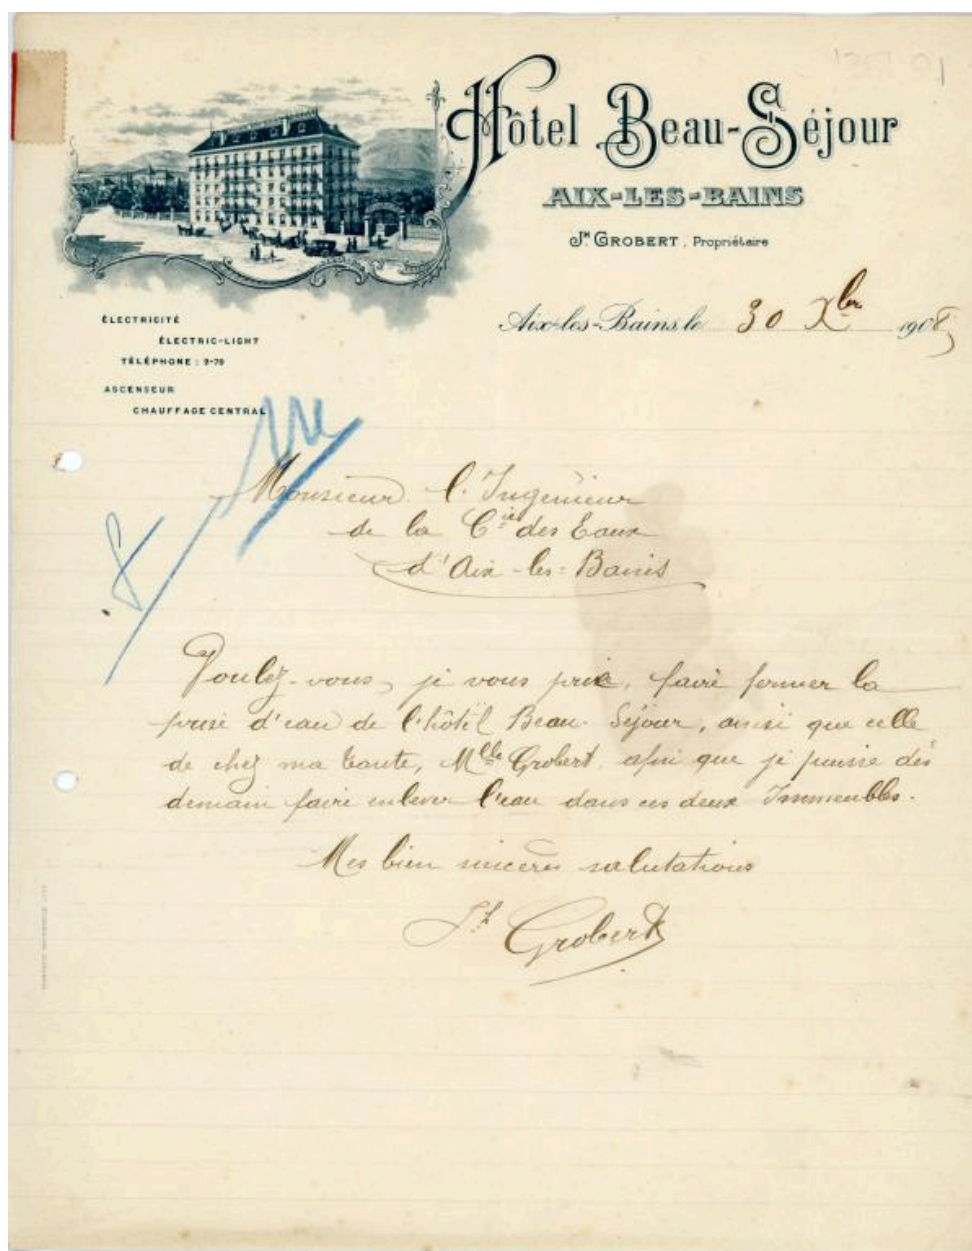 Hôtel Beau-Séjour
AIX-LES-BAINS
Jh GROBERT, Propriétaire
Aix-les-Bains, le 30 Xber 1908
ÉLECTRICITÉ
ÉLECTRIC-LIGHT
TÉLÉPHONE : 2-79
ASCENSEUR
CHAUFFAGE CENTRAL
Monsieur l'Ingénieur
de la Cie des Eaux
d'Aix-les-Bains
Voulez-vous, je vous prie, faire fermer la
prise d'eau de l'hôtel Beau-Séjour, ainsi que celle
de chez ma tante, Mlle Grobert, afin que je puisse dès
demain faire enlever l'eau dans ces deux Immeubles.
Mes bien sincères salutations
Jh Grobert